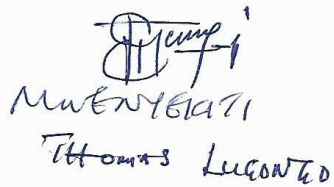 MWENYEKITI
THOMAS LUGONGO